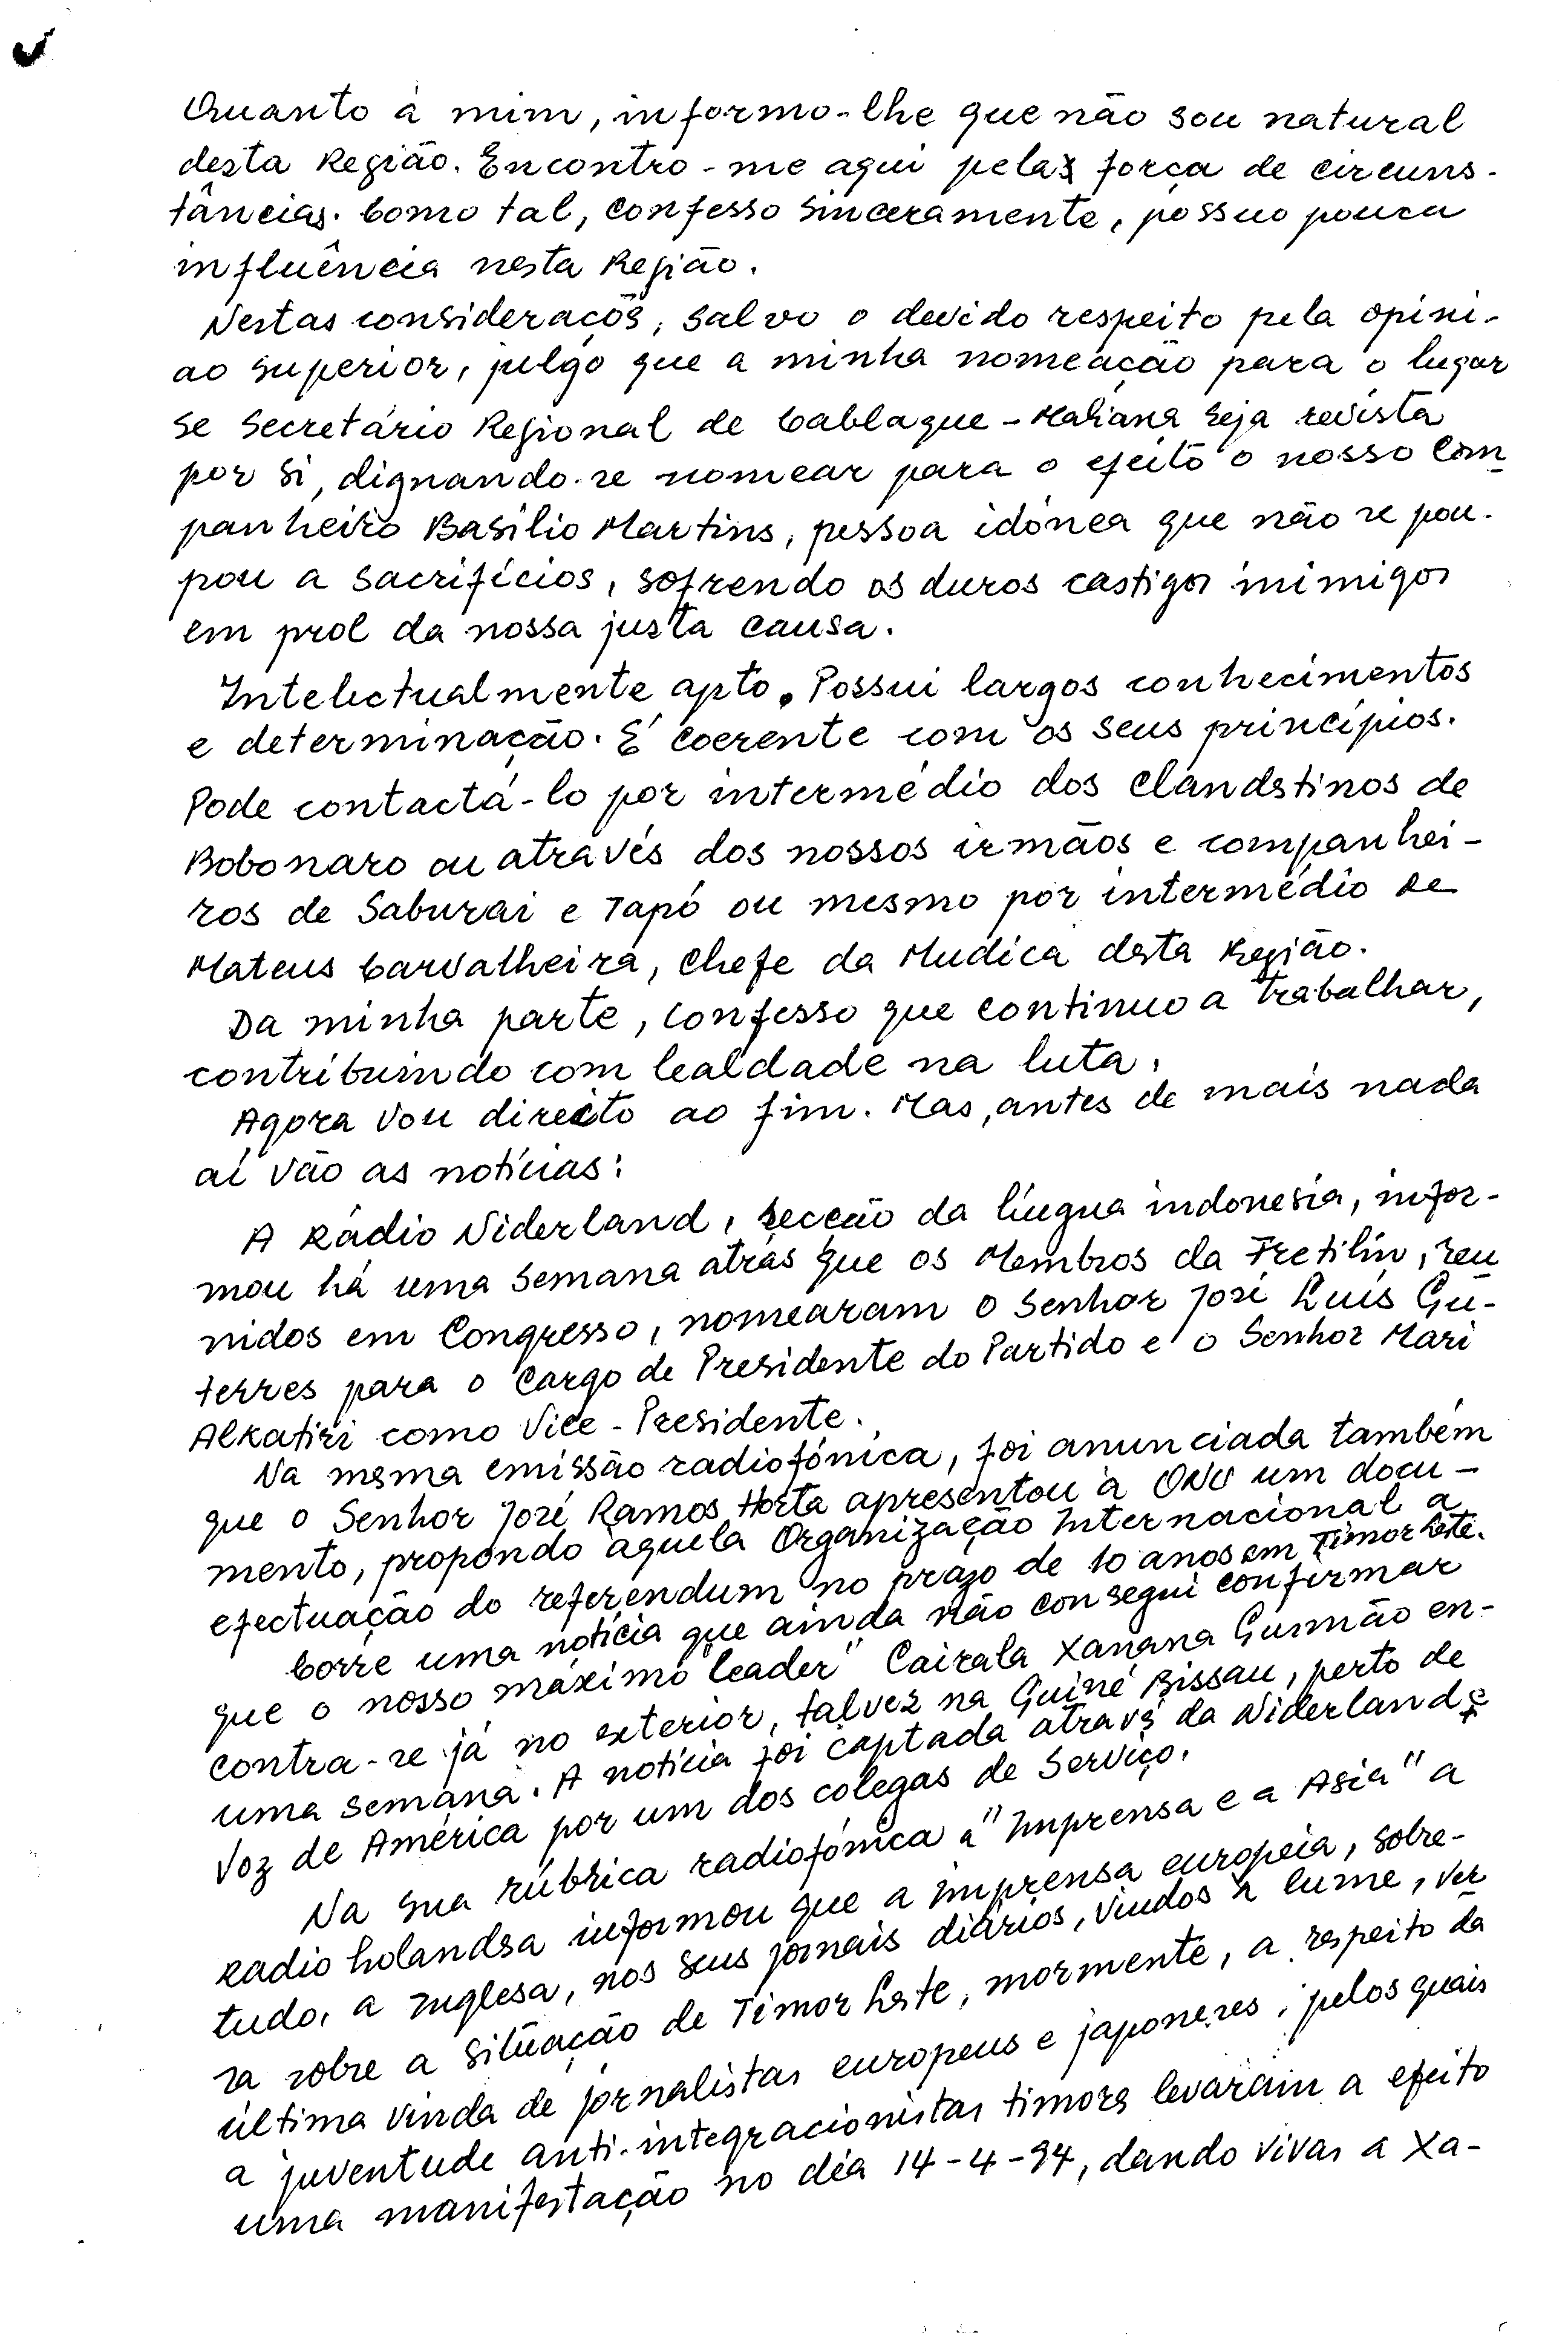 Quanto à mim, informo-lhe que não sou natural
desta Região. Encontro-me aqui pela força de circuns-
tâncias. Como tal, confesso sinceramente, possuo pouca
influência nesta Região.
Nestas consideraçõs, salvo o devido respeito pela opini-
ao superior, julgo que a minha nomeação para o lugar
se Secretário Regional de Cablaque-Maliana seja revista
por si, dignando-se nomear para o efeito o nosso com
panheiro Basílio Martins, pessoa idónea que não se pou-
pou a sacrifícios, sofrendo os duros castigos inimigos
em prol da nossa justa causa.
Intelectualmente apto. Possui largos conhecimentos
e determinação. É coerente com os seus princípios.
Pode contactá-lo por intermédio dos clandstinos de
Bobonaro ou através dos nossos irmãos e companhei-
ros de Saburai e Tapó ou mesmo por intermédio de
Mateus Carvalheira, Chefe da Mudica desta Região.
Da minha parte, confesso que continuo a trabalhar,
contribuindo com lealdade na luta.
Agora vou direito ao fim. Mas, antes de mais nada
aí vão as notícias:
A Rádio Niderland, secção da língua indonesia, infor-
mou há uma semana atrás que os Membros da Fretilin, reu
nidos em Congresso, nomearam o Senhor José Luís Gu-
terres para o cargo de Presidente do Partido e o Senhor Mari
Alkatiri como Vice-Presidente.
Na mesma emissão radiofónica, foi anunciada também
que o Senhor José Ramos Horta apresentou à ONU um docu-
mento, propondo àquela Organização Internacional a
efectuação do referendum no prazo de 10 anos em Timor Leste.
Corre uma notícia que ainda não consegui confirmar
que o nosso máximo "leader" Cairala Xanana Gusmão en-
contra-se já no exterior, talvez na Guiné Bissau, perto de
uma semana. A notícia foi captada atravś da Niderland e
Voz de América por um dos colegas de Serviço.
Na sua rúbrica radiofónica a "Imprensa e a Asia" a
Radio holandsa informou que a imprensa europeia, sobre-
tudo, a Inglesa, nos seus jornais diários, vindos à lume, ver
sa sobre a situação de Timor Leste, mormente, a respeito da
última vinda de jornalistas europeus e japoneses, pelos quais
a juventude anti-integracionistas timors levaram a efeito
uma manifestação no dia 14-4-94, dando vivas a Xa-